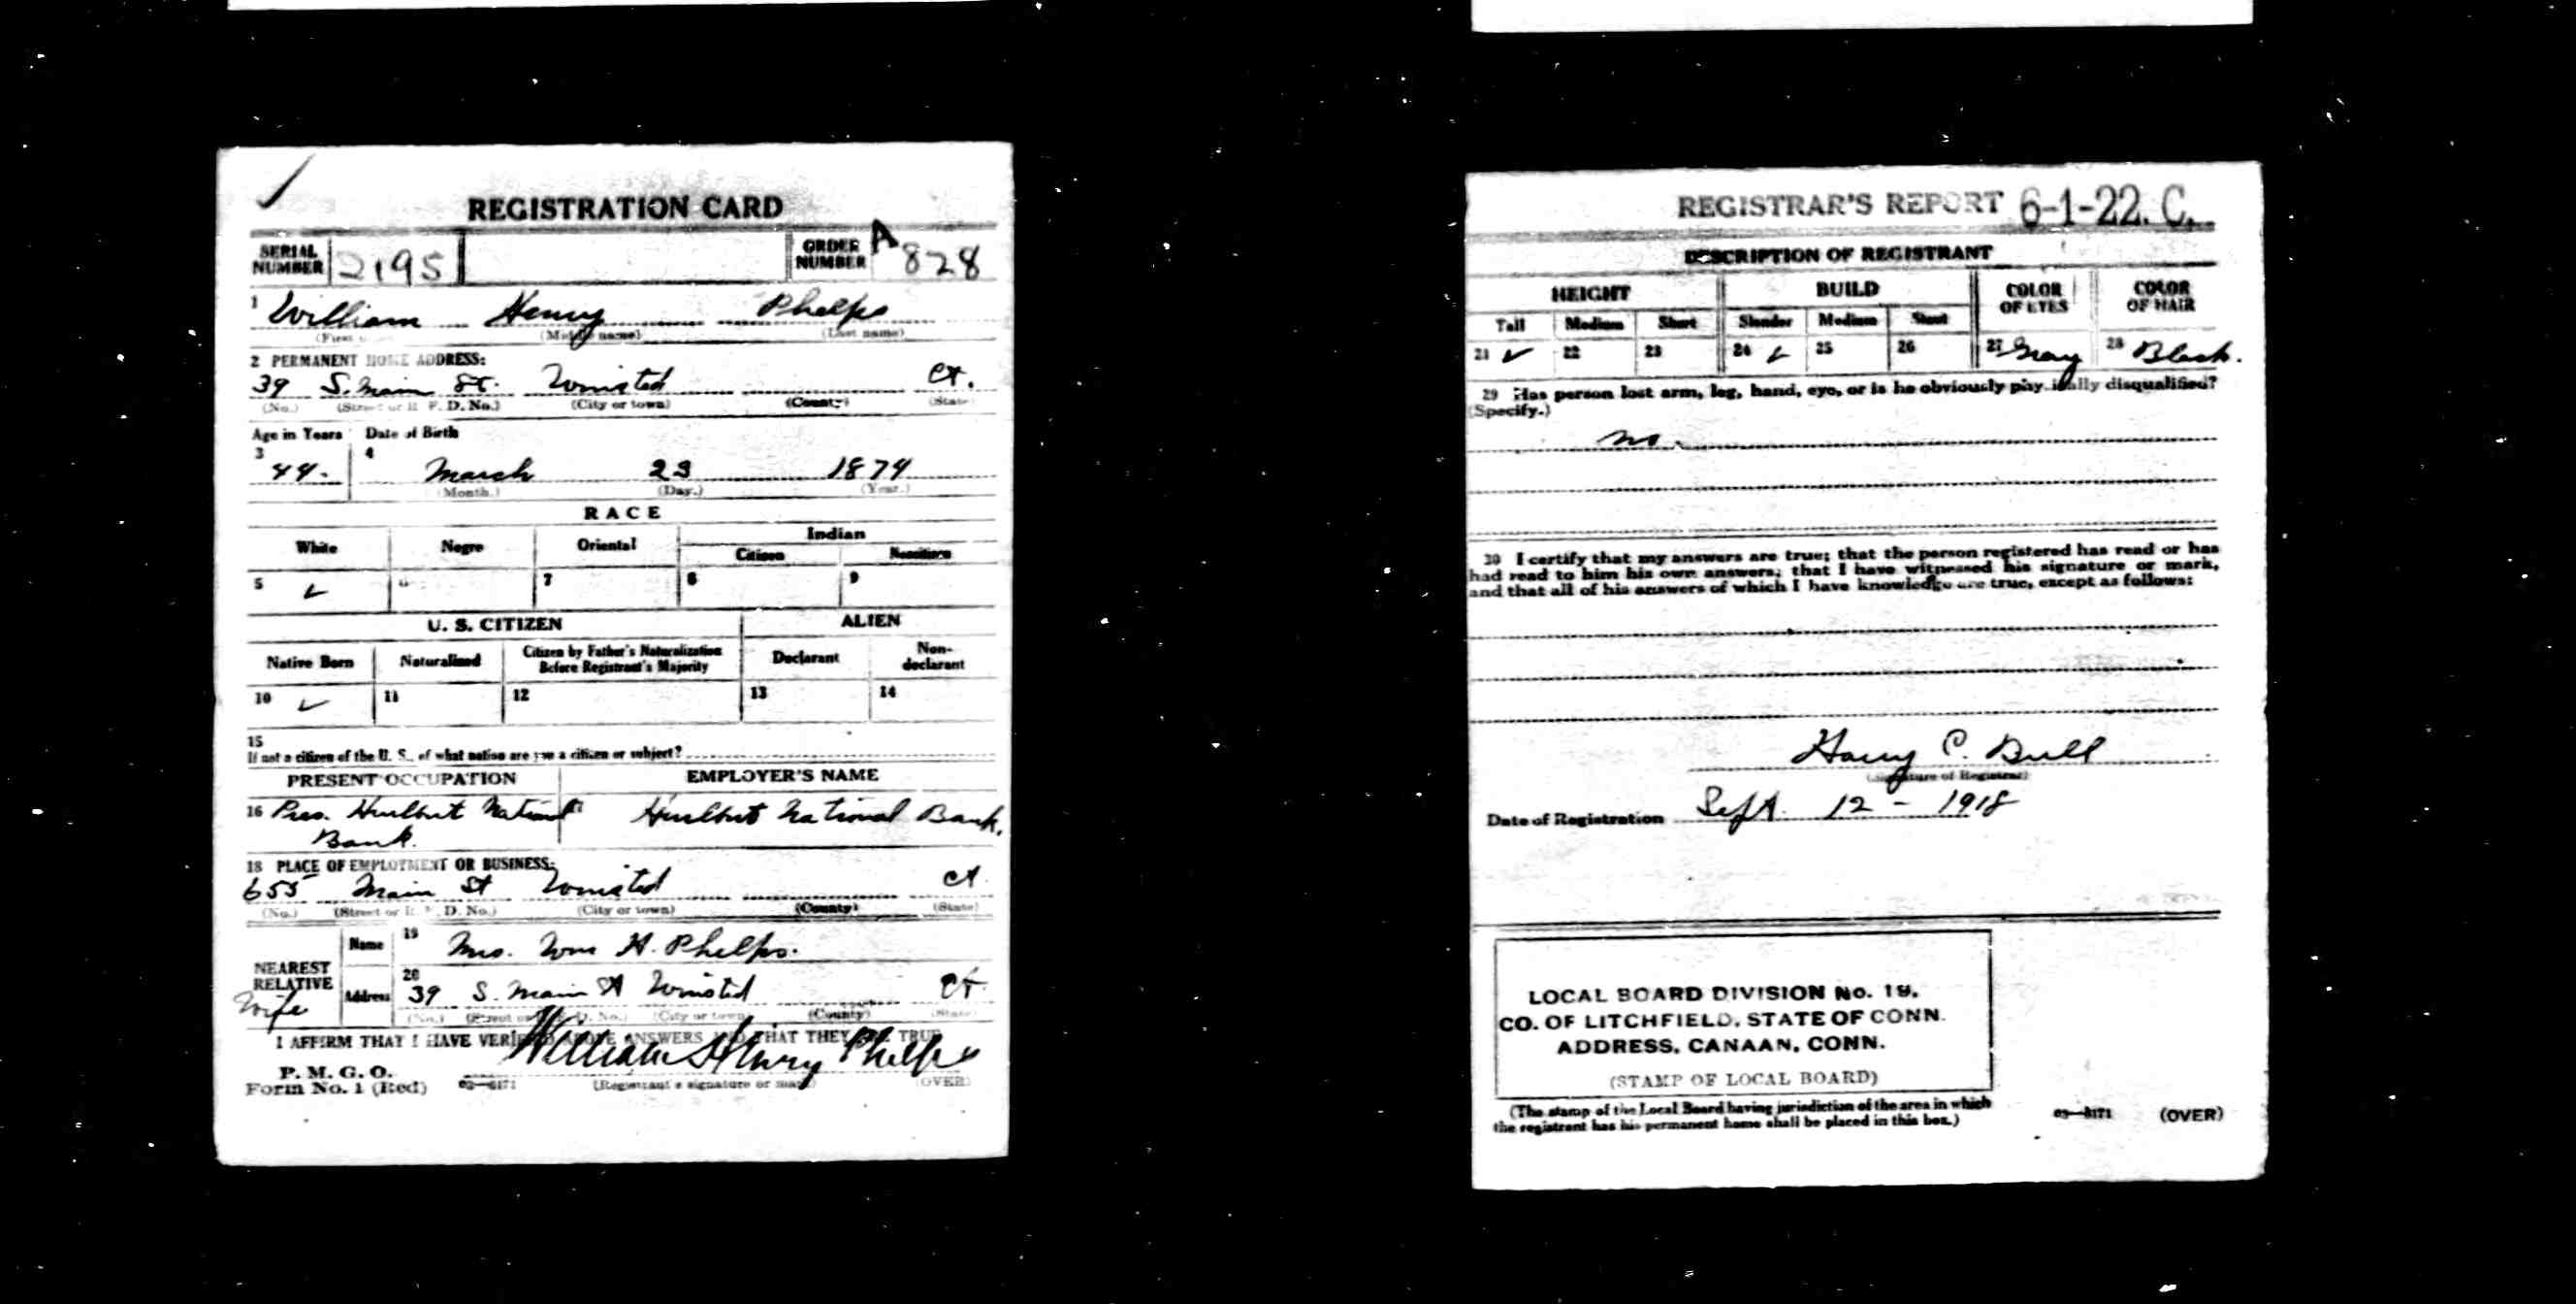 REGISTRATION CARD
SERIAL NUMBER 2195 ORDER NUMBER A 828
1 William Henry Phelps
(First name) (Middle name) (Last name)
2 PERMANENT HOME ADDRESS:
39 S. Main St. Winsted Ct.
(No.) (Street or R. F. D. No.) (City or town) (County) (State)
Age in Years Date of Birth
3 44. 4 March 23 1874
(Month.) (Day.) (Year.)
RACE
White Negro Oriental Indian
Citizen Noncitizen
5 ✓ 6 7 8 9
U. S. CITIZEN ALIEN
Native Born Naturalized Citizen by Father's Naturalization Before Registrant's Majority Declarant Non-declarant
10 ✓ 11 12 13 14
15
If not a citizen of the U. S., of what nation are you a citizen or subject?
PRESENT OCCUPATION EMPLOYER'S NAME
16 Pres. Hurlbut National Hurlbut National Bank.
Bank.
18 PLACE OF EMPLOYMENT OR BUSINESS:
655 Main St Winsted Ct.
(No.) (Street or R. F. D. No.) (City or town) (County) (State)
NEAREST RELATIVE Name 19 Mrs. Wm H. Phelps.
Wife Address 20 39 S. Main St Winsted Ct.
(No.) (Street or R. F. D. No.) (City or town) (County) (State)
I AFFIRM THAT I HAVE VERIFIED ABOVE ANSWERS AND THAT THEY ARE TRUE
William Henry Phelps
P. M. G. O.
Form No. 1 (Red) 03—6171 (Registrant's signature or mark) (OVER)
REGISTRAR'S REPORT 6-1-22. C.
DESCRIPTION OF REGISTRANT
HEIGHT BUILD COLOR OF EYES COLOR OF HAIR
Tall Medium Short Slender Medium Stout
21 ✓ 22 23 24 ✓ 25 26 27 Gray 28 Black.
29 Has person lost arm, leg, hand, eye, or is he obviously physically disqualified?
(Specify.)
no.
30 I certify that my answers are true; that the person registered has read or has
had read to him his own answers; that I have witnessed his signature or mark,
and that all of his answers of which I have knowledge are true, except as follows:
Harry C. Bull
(Signature of Registrar)
Date of Registration Sept. 12 - 1918
LOCAL BOARD DIVISION No. 19.
CO. OF LITCHFIELD, STATE OF CONN.
ADDRESS, CANAAN, CONN.
(STAMP OF LOCAL BOARD)
(The stamp of the Local Board having jurisdiction of the area in which
the registrant has his permanent home shall be placed in this box.)
03—6171 (OVER)